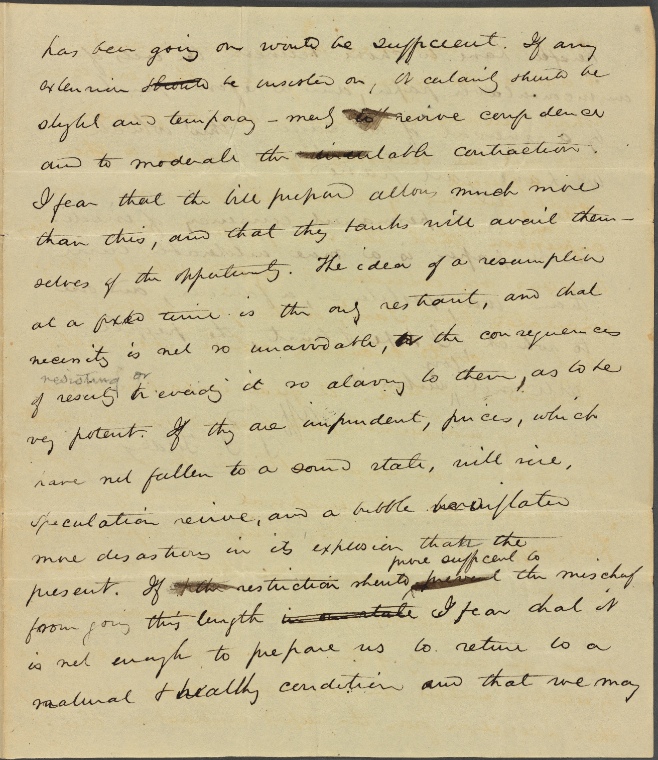 has been going on would be sufficient. If any
extension should be insisted on, it certainly should be
slight and temporary - merely to revive confidence
and to moderate the contraction.
I fear that the bill prepared allows much more
than this, and that they banks will avail them-
selves of the opportunity. The idea of a resumption
at a fixed time is the only restraint, and that
necessity is not so unavoidable, or the consequences
resisting or
of resisting or evading it so alarming to them, as to be
very potent. If they are imprudent, prices, which
have not fallen to a sound state, will rise,
speculation revive, and a bubble be inflated
more disastrous in its explosion than the
prove sufficient to
present. If restriction should prevent the mischief
from going this length in our state I fear that it
is not enough to prepare us to return to a
natural & healthy condition and that we may